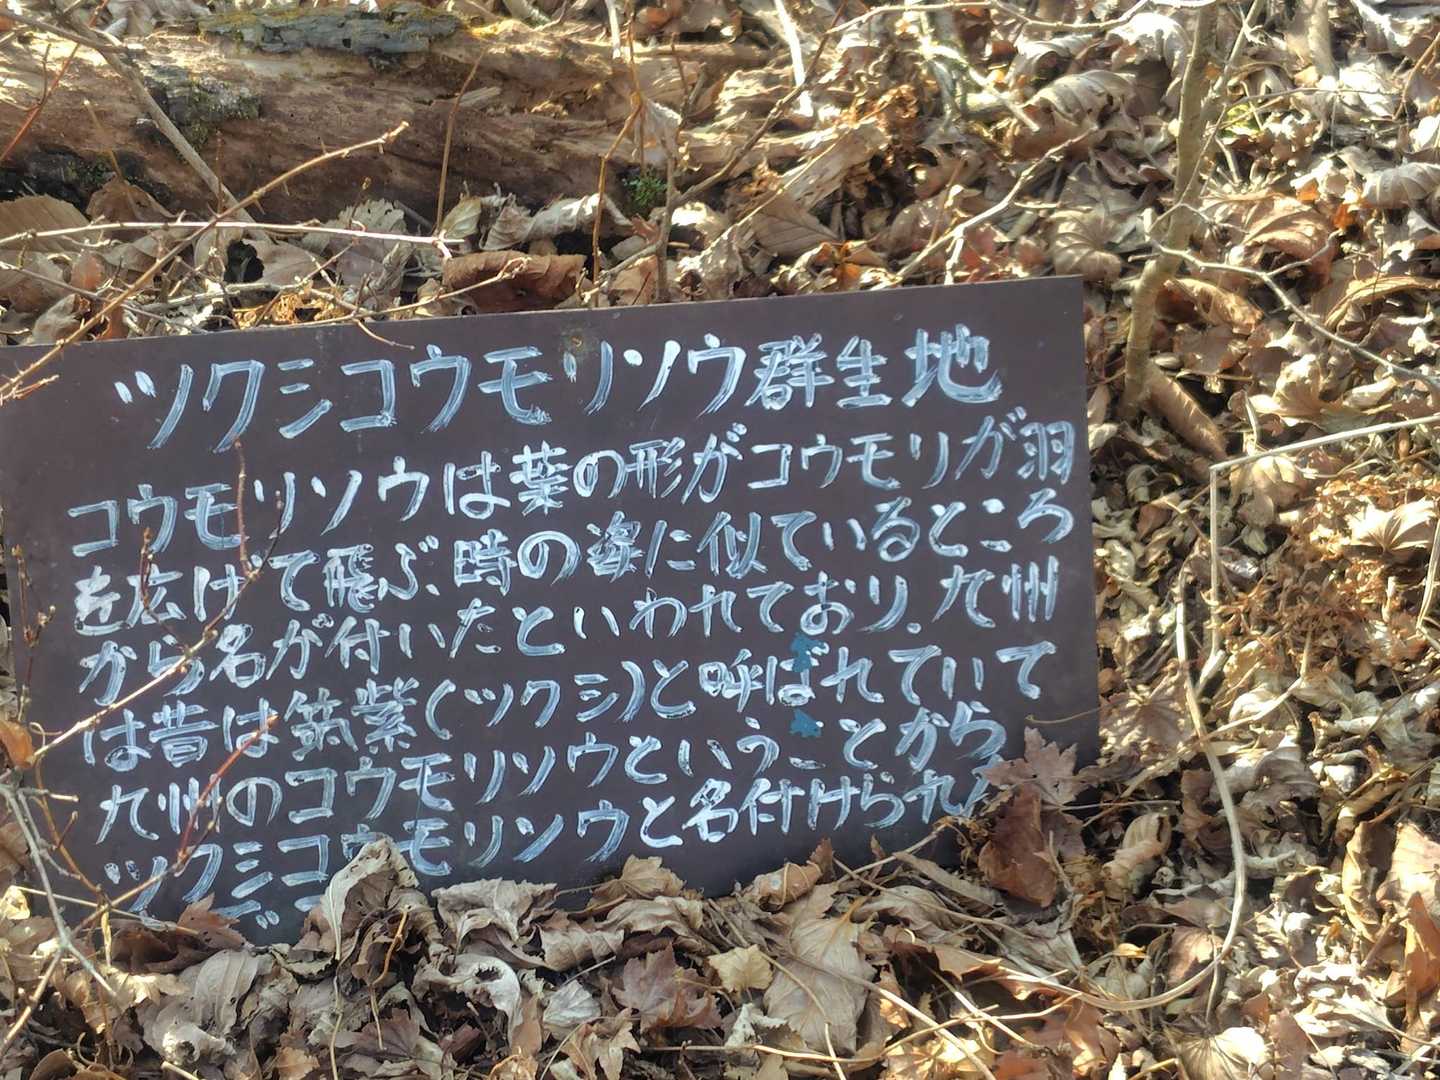 ツクシコウモリソウ群生地
コウモリソウは葉の形がコウモリが羽
を広げて飛ぶ時の姿に似ているところ
から名が付いたといわれており。九州
は昔は筑紫(ツクシ)と呼ばれていて
九州のコウモリソウということから
ツクシコウモリソウと名付けられ